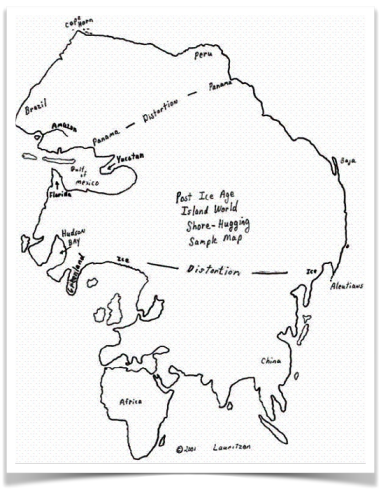 Cape
Horn
Peru
Brazil
Panama
Distortion
Amazon
Panama
Yucatan
Gulf
of
mexico
Baja
Florida
Post Ice Age
Island World
Shore-Hugging
Sample Map
Hudson
BAY
Greenland
Ice
Distortion
Ice
Aleutians
China
Africa
©2001 Lauritzen